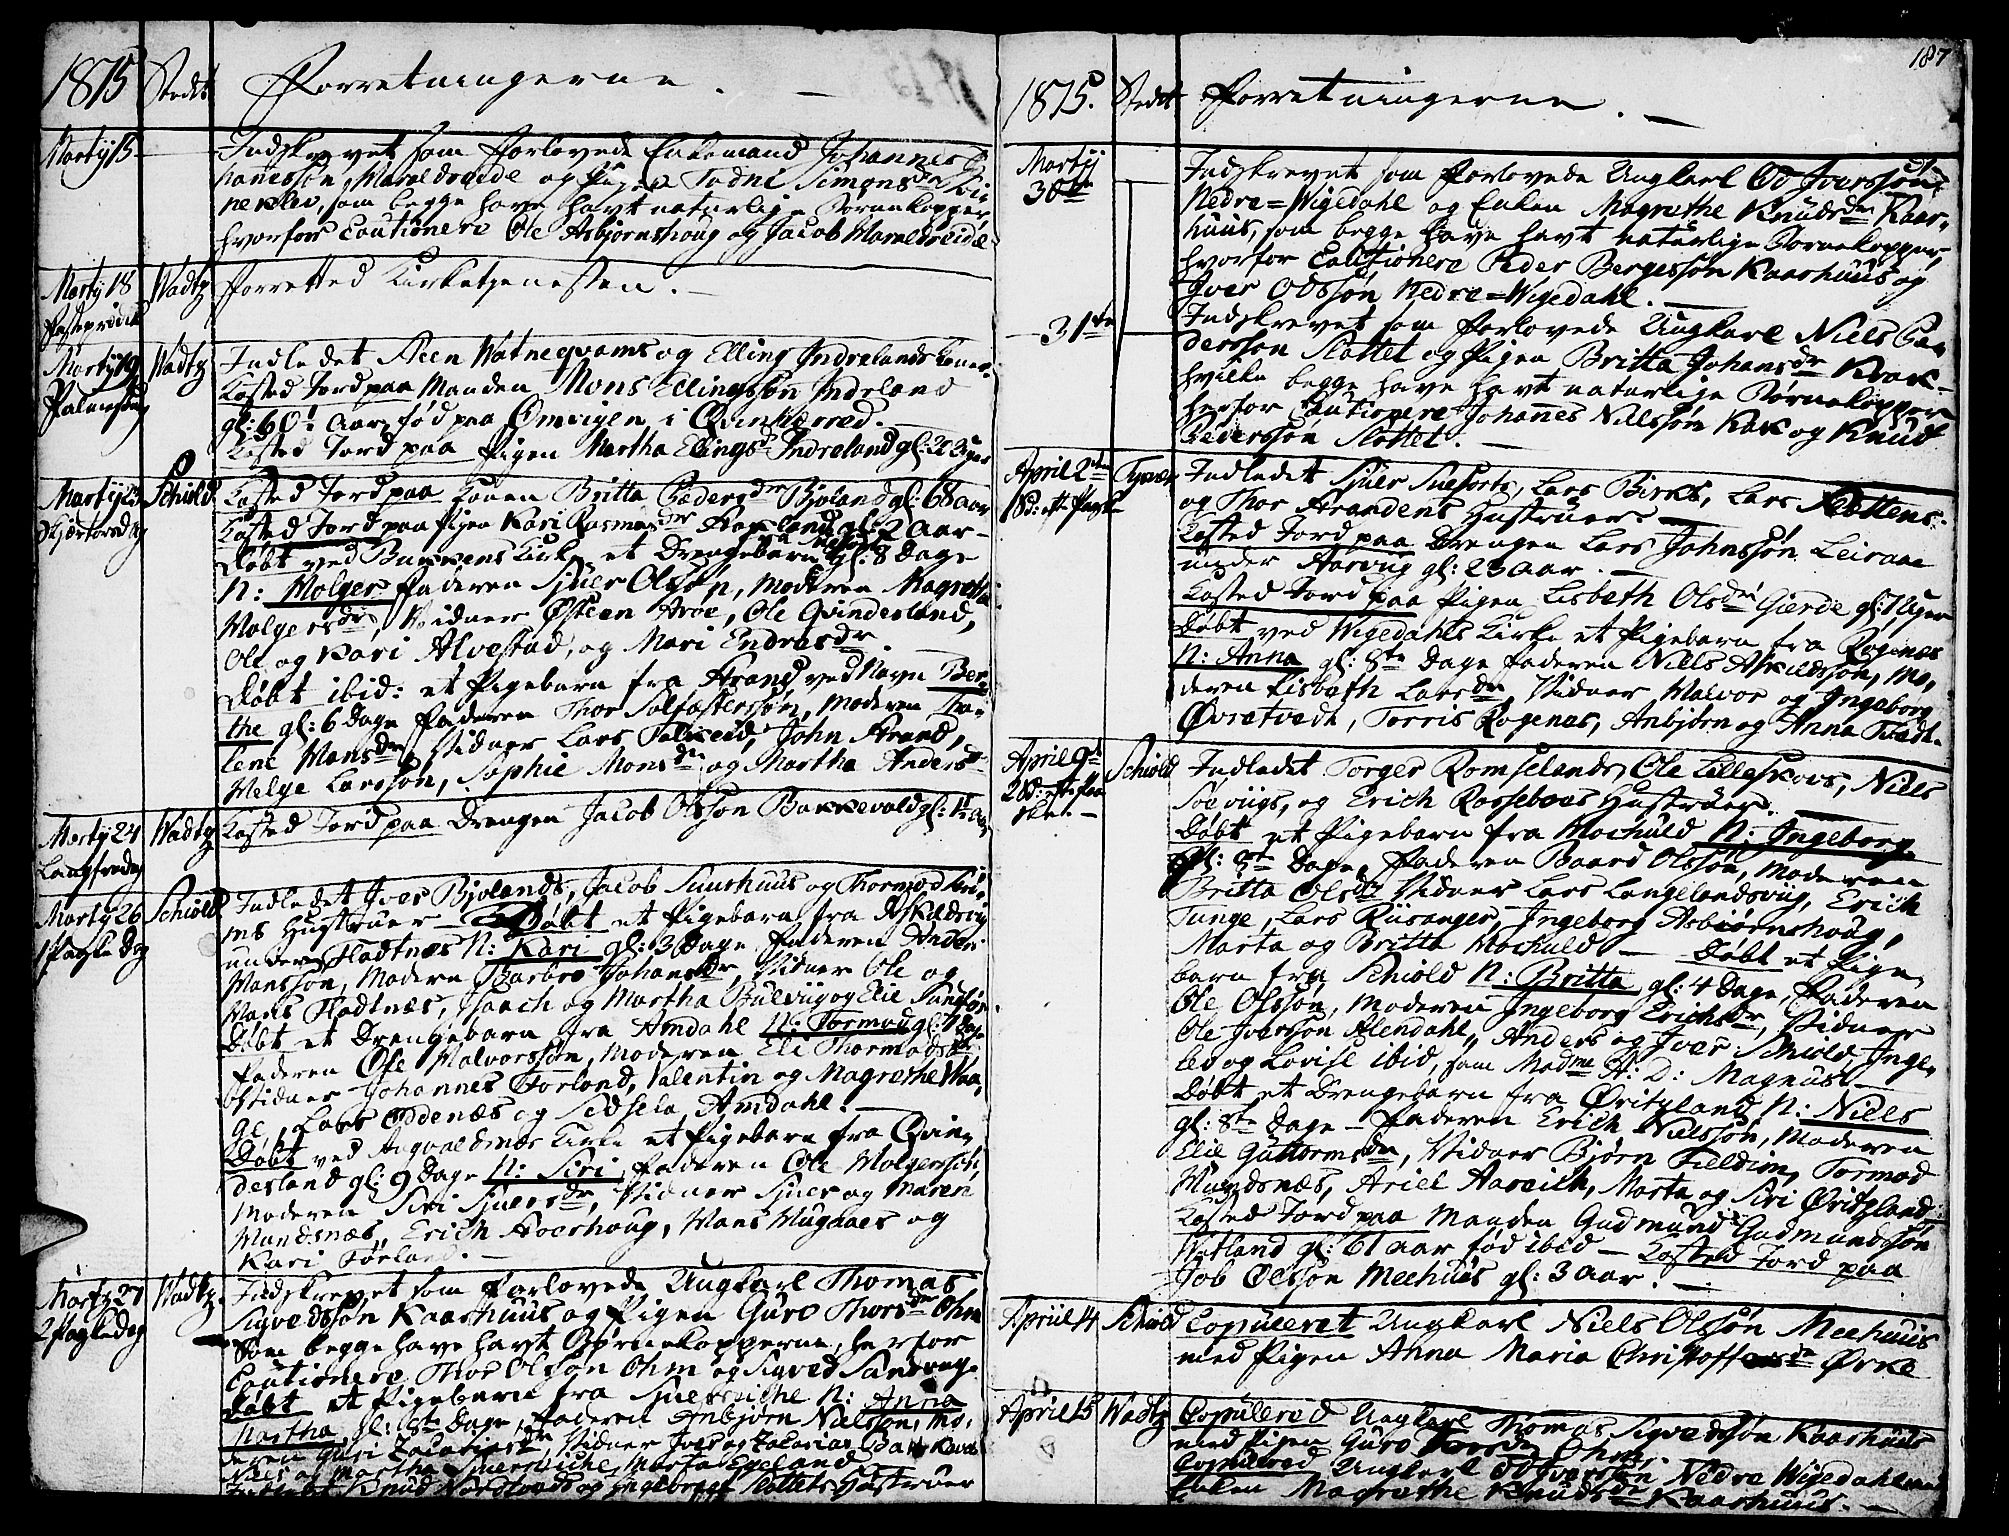 1815 Stedet Forretningerne.
Martij 15 Indskrevet som Forlovede Enkemand Johannes Jo-
hanesson Haraldseide og Pigen Todni Simonsdr Svi-
neklev, som begge have havt naturlige Børnekopper,
hvorfor Cautionere Ole Asbjornshoug og Jacob Haraldseide
Martij 18 Wadtz Forretted Kirketjenesten.
Fasteprædik
Martij 19 Wadtz Indledet Steen Watneqvams og Elling Indrelands Koner.
Palmesdag Kasted Jord paa Manden Mons Ellingssøn Indreland
gl: 60 Aar, fød paa Ømvigen i Qvinherred.
Kasted Jord paa Pigen Martha Ellingsdr Indreland gl: 20 Uger
Martij 23 Schiold Kasted Jord paa Konen Britta Pedersdr Bjoland gl: 68 aar
Skjærtorsdag Kasted Jord paa Pigen Kari Rasmusdr gl: 2 Aar
Døbt ved Buckens Kirke et Drengebarn gl: 8 Dage
N: Holger Faderen Sjuer Olsøn, Moderen Magretha
Holgersdr, Vidner Østeen Aroe, Ole Qvindesland,
Ole og Kari Alvestad, og Mari Endresdr.
Døbt ibid: et Pigebarn fra Strand ved Navn Ber-
the gl: 6 Dage Faderen Thor Salfastersøn, Moderen Tha-
lene Monsdr, Vidner Lars Falkeid, John Strand,
Helge Larssøn, Sophie Monsdr og Martha Andersdr
Martij 24 Wadtz Kasted Jord paa Drengen Jacob Olsson Backevold gl: 4 aar
Langfredag
Martij 26 Schiold Indledet Iver Bjolands, Jacob Suushuus og Thormod
1 Paaske Dag Hustruer – Døbt et Pigebarn fra
under Fladtnæs N: Kari gl: 3 Dage, Faderen Anders
Monsson, Moderen Barbro Johansdr, Vidner Ole og
Mons Fladtnæs, Isaach og Martha Bulviig og Elie
Døbt et Drengebarn fra Amdahl N: Tormod gl: Dage
Faderen Ole Halvorssøn, Moderen Eli Thormodsdr
Vidner Johannes Forland, Valentin og Magrethe Waa-
ge, Lars Oddenæs og Sidsela Amdahl.
Døbt ved Augvaldsnæs Kirke et Pigebarn fra Qvin-
desland gl: 9 Dage N: Siri, Faderen Ole Holgersøn,
Moderen Siri Sjuersdr, Vidner Sjuer og Maren
Mundsnæs, Erich Hoershoug, Mons Mugnaes og
Kari Førland.
Martij 27 Wadtz Indskrevet som Forlovede Ungkarl Thomas
2 Paaskedag Siqvedssøn Kaarhuus og Pigen Guro Thorsdr Ohm
Som begge have havt Børnekopperne, herfor
Cautionere Thor Olsøn Ohm og Siqved Sandvag.
Døbt et Pigebarn fra N: Anna
Martha, gl: 8te Dage, Faderen Anbjørn Nielssøn, Mo-
deren Guri Zacariasdr, Vidner Iver og Zacarias
Niels og Martha Marta Egeland
Indledet Knud Nordtvedts og Ingebregt Slottets Hustruer
187
1815. Stedet Forretningerne.
Martij Indskrevet som Forlovede Ungkarl Od Iverssøn
30te Nedre=Wigedahl og Enken Magrethe Knudsdr Kaar-
huus, som begge have havt naturlige Børnekopper,
hvorfor Cautionere Peder Bergessøn Kaarhuus og
Iver Odssøn Nedre=Wigedahl.
31te Indskrevet som Forlovede Ungkarl Niels Pe-
dersson Slottet og Pigen Britta Johansdr Krak-
hvilke begge have havt naturlige Børnekopper
herfor Cautionere Johannes Nilssøn Krak og Knud
Pederssøn Slottet.
April 2den Tysvær Indledet Sjuer Suesorts, Lars Birks, Lars Slettens
1 S: eft: Paaske og Thor Strandens Hustruer.
Kasted Jord paa Drengen Lars Johnssøn Leiraae
under Aarviig gl: 23 aar.
Kasted Jord paa Pigen Lisbeth Olsdr Gierde gl: Uger
Døbt ved Wigedahls Kirke et Pigebarn fra Rogenæs
N: Anna gl: 8te Dage Faderen Niels Askildssøn, Mo-
deren Lisbeth Larsdr, Vidner Halvor og Ingeborg
Øvretvedt, Torris Rogenæs, Anbjørn og Anna Tvedt.
April 9de Schiold Indledet Torger Romselands, Ole Lilleskovs, Niels
2 S: eft: Paa- Soeviigs, og Erich Rosseboes Hustruer.
ske. – Døbt et Pigebarn fra Hochuld N: Ingeborg
gl: 8te Dage, Faderen Baard Olssøn, Moderen
Britta Olsdr Vidner Lars Langelandsviig, Erich
Tunge, Lars Riisanger, Ingeborg Asbiørnshoug,
Marta og Britta Hochuld – Døbt et Pige-
barn fra Schiold N: Britta gl: 4 Dage, Faderen
Ole Olssøn, Moderen Ingeborg Erichsdr, Vidner
Ole Iversøn Alendahl, Anders og Iver Schiold Inge-
led og Lovise ibid, sam Madme A: D: Magnus.
Døbt et Drengebarn fra Øritzland N: Niels
gl: 8te Dage – Faderen Erich Nilssøn, Moderen
Elie Guttormsdr, Vidner Bjørn Tieldim, Tormod
Mundsnæs, Ariel Aareich, Marta og Siri Øritzland
Kasted Jord paa Manden Gudmund Gudmundssøn
Watland gl: 61 aar fød ibid – Kasted Jord paa
Job Olssøn Meehuus gl: 3 Aar.
Apriil 14 Schiold Copuleret Ungkarl Niels Olssøn Meehuus
med Pigen Anna Maria Christoffersdr Ørke
April 15 Wadtz Copulered Ungkarl Thomas Siqvedssøn Kaarhuus
med Pigen Guro Thorsdr Ohm.
Copulered Ungkarl Od Iverssøn Nedre Wigedahl med
Enken Magrethe Knudsdr Kaarhuus.